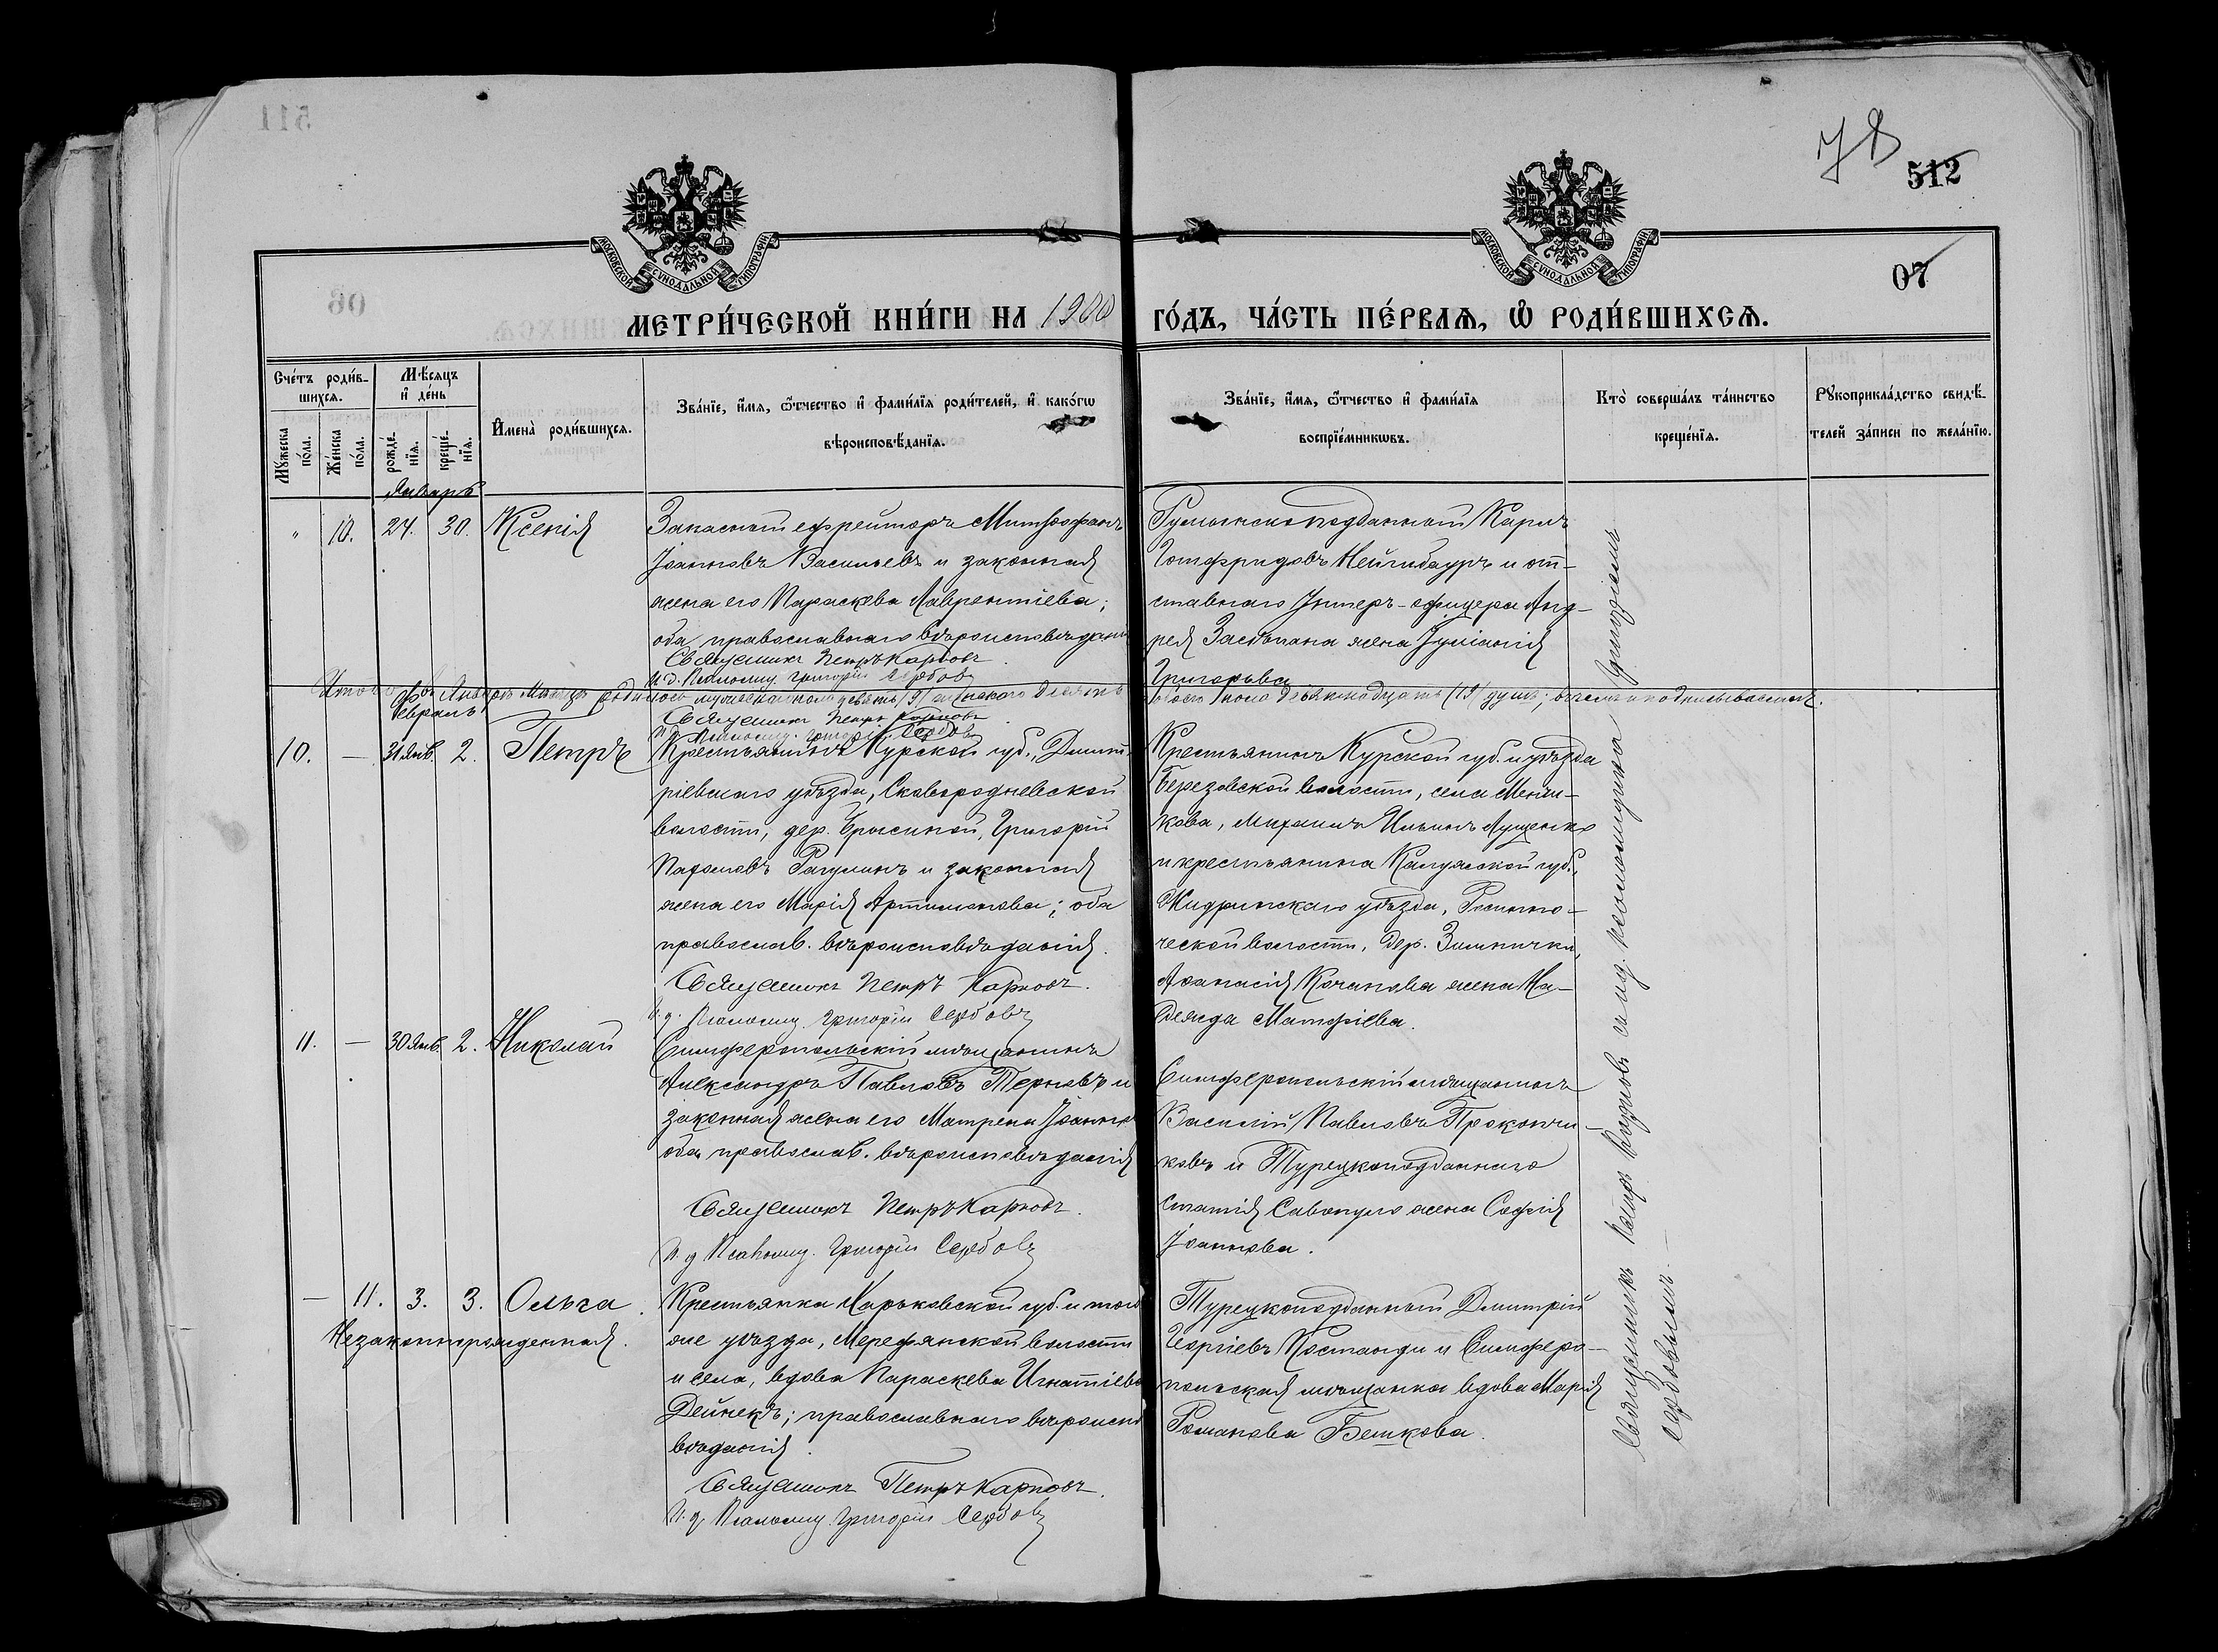 78
512
07
МОСКОВСКОЙ СѴНОДАЛЬНОЙ ТИПОГРАФІИ
МОСКОВСКОЙ СѴНОДАЛЬНОЙ ТИПОГРАФІИ
МЕТРИ́ЧЕСКОЙ КНИ́ГИ НА 1900 ГО́ДЪ, ЧА́СТЬ ПЕ́РВАѦ, Ѡ РОДИ́ВШИХСѦ.
Сче́тъ роди́в-
шихсѧ.
Мꙋ́жеска по́ла.
Же́нска по́ла.
Мѣ́сѧцъ и де́нь
рожде́-нїѧ.
креще́-нїѧ.
Имена̀ роди́вшихсѧ.
Зва́нїе, и́мѧ, ѻ҆́тчество и фами́лїѧ роди́телей, и како́гѡ
вѣроисповѣ́данїѧ.
Зва́нїе, и́мѧ, ѻ҆́тчество и фами́лїѧ
воспрїе́мникѡвъ.
Кто̀ соверша́лъ та́инство
креще́нїѧ.
Рꙋкоприкла́дство свидѣ́-
телей за́писи по жела́нїю.
Январь
" 10. 24. 30. Ксенія
Запасный ефрейторъ Митрофанъ
Іоанновъ Васильевъ и законная
жена его Параскева Лаврентіева;
оба православнаго вѣроисповѣданія
Священникъ Петръ Карповъ.
И. д. Псаломщ. Григорій Сербовъ
Румынскоподданный Карлъ
Готфридовъ Нейгибауръ и от-
ставнаго Унтеръ-офицера Анд-
рея Засыпана жена Іуліанія
Григорьева
Итого въ Январѣ Мѣсяцѣ родилось мужеска пола девять (9) женскаго десять обоего пола девятнадцать (19) душъ; въ чемъ и подписываемся.
Священникъ Петръ Карповъ
И. д. Псаломщ. Григорій Сербовъ
Февраль
10. — 31 Янв. 2. Петръ
Крестьянинъ Курской губ., Дмит-
ріевскаго уѣзда, Сковородневской
волости, дер. Григорій
Пафомовъ Рагулинъ и законная
жена его Марія Артимонова; оба
православ. вѣроисповѣданія.
Священникъ Петръ Карповъ.
И. д. Псаломщ. Григорій Сербовъ
Крестьянинъ Курской губ. и уѣзда
Березовской волости, села Менши-
кова, Михаилъ Ильинъ Лущенко
и крестьянина Калужской губ.,
Жидринскаго уѣзда,
ческой волости, дер. Зимнички,
Аѳанасія Кочанова жена На-
дежда Матфіева.
11. — 30 Янв. 2. Николай
Симферопольскій мѣщанинъ
Александръ Павловъ Терновъ и
законная жена его Матрена Іоаннова
оба православ. вѣроисповѣданія
Священникъ Петръ Карповъ.
И. д. Псаломщ. Григорій Сербовъ
Симферопольскій мѣщанинъ
Василій Павловъ Прокопчи-
ковъ и Турецкоподданнаго
Статія Савопуло жена Софія
Іоаннова.
— 11. 3. 3. Ольга.
Незаконнорожденная.
Крестьянка Харьковской губ. и того
же уѣзда, Мерефянской волости
и села, вдова Параскева Игнатіева
Дейнекъ; православнаго вѣроиспо-
вѣданія.
Священникъ Петръ Карповъ.
И. д. Псаломщ. Григорій Сербовъ
Турецкоподданный Димитрій
Георгіевъ Костанди и Симферо-
польская мѣщанка вдова Марія
Романова Бешкова.
Священникъ Петръ Карповъ съ и. д. псаломщика Григоріемъ
Сербовымъ.